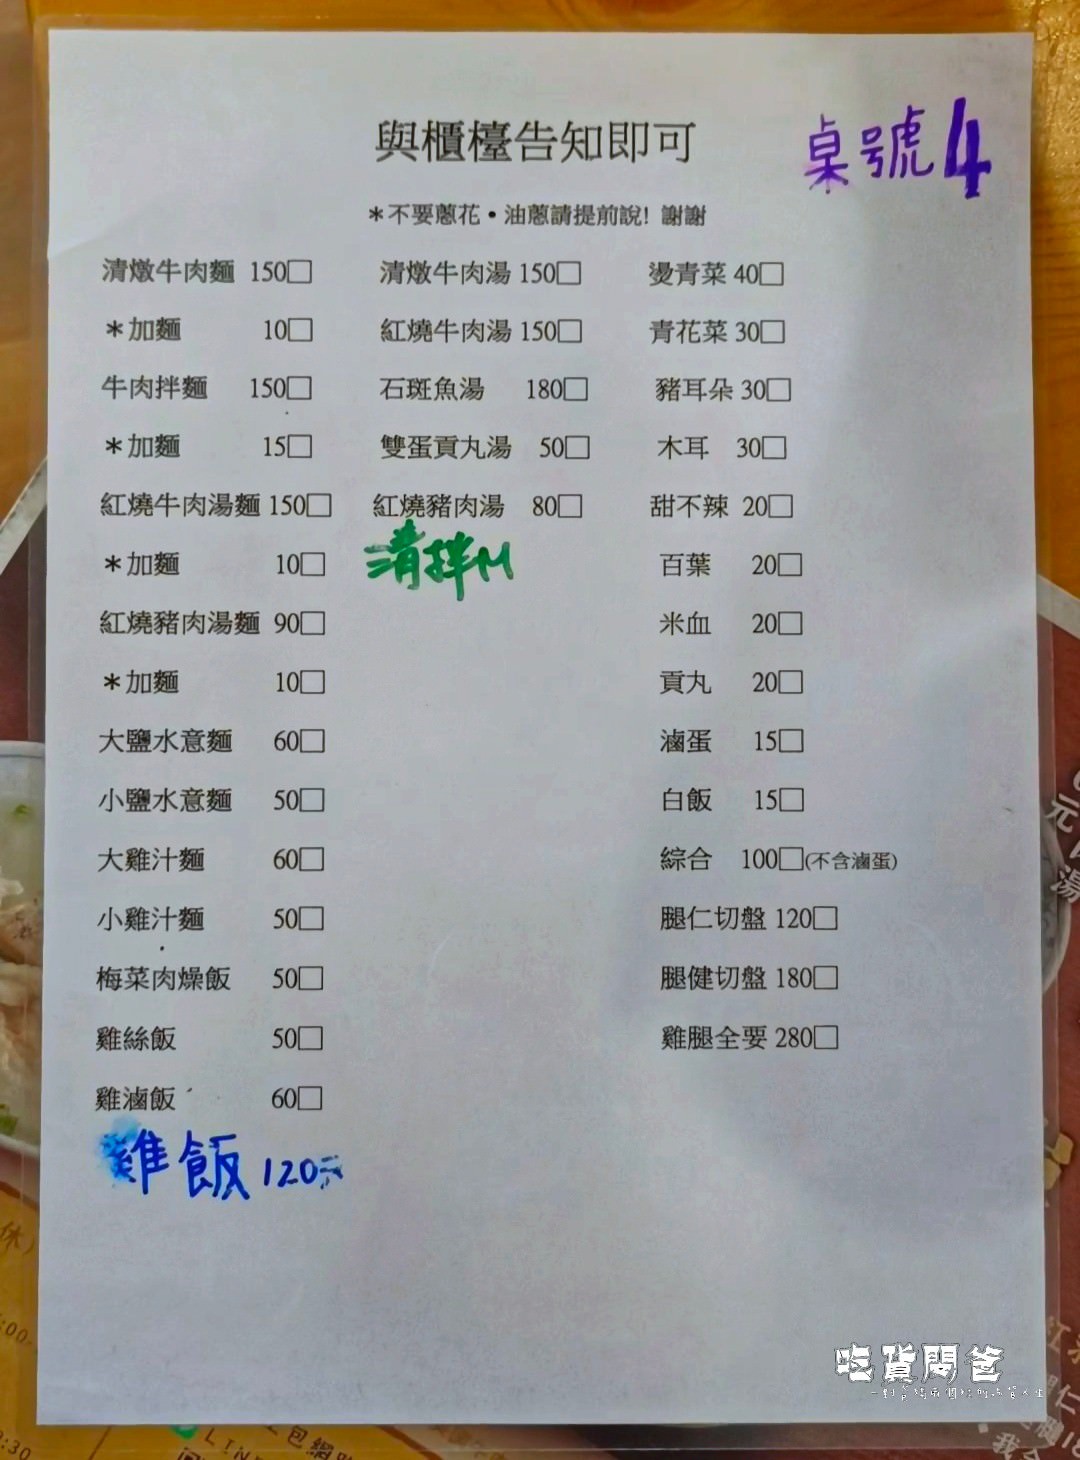 與櫃檯告知即可
桌號4
＊不要蔥花•油蔥請提前說! 謝謝
清燉牛肉麵 150□
＊加麵 10□
牛肉拌麵 150□
＊加麵 15□
紅燒牛肉湯麵 150□
＊加麵 10□
紅燒豬肉湯麵 90□
＊加麵 10□
大鹽水意麵 60□
小鹽水意麵 50□
大雞汁麵 60□
小雞汁麵 50□
梅菜肉燥飯 50□
雞絲飯 50□
雞滷飯 60□
雞飯 120元
清燉牛肉湯 150□
紅燒牛肉湯 150□
石斑魚湯 180□
雙蛋貢丸湯 50□
紅燒豬肉湯 80□
清拌
燙青菜 40□
青花菜 30□
豬耳朵 30□
木耳 30□
甜不辣 20□
百葉 20□
米血 20□
貢丸 20□
滷蛋 15□
白飯 15□
綜合 100□(不含滷蛋)
腿仁切盤 120□
腿健切盤 180□
雞腿全要 280□
元
湯
休)
:00-
LINE
包網
:30
我
仁
吃貨問爸